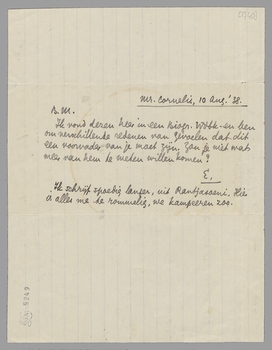 Mr. Cornelis, 10 Aug. '38.
B.M.
Ik vond deren hees in een Biogr. Wdbk - en ben
om verschillende redenen van gevoelen dat dit
een voorvader van je moet zijn. Zou je niet wat
meer van hem te weten willen komen?
E.
Ik schrijf spoedig langer, uit Rantjasoeni. Hier
is alles me te rommelig, we kamperen zoo.